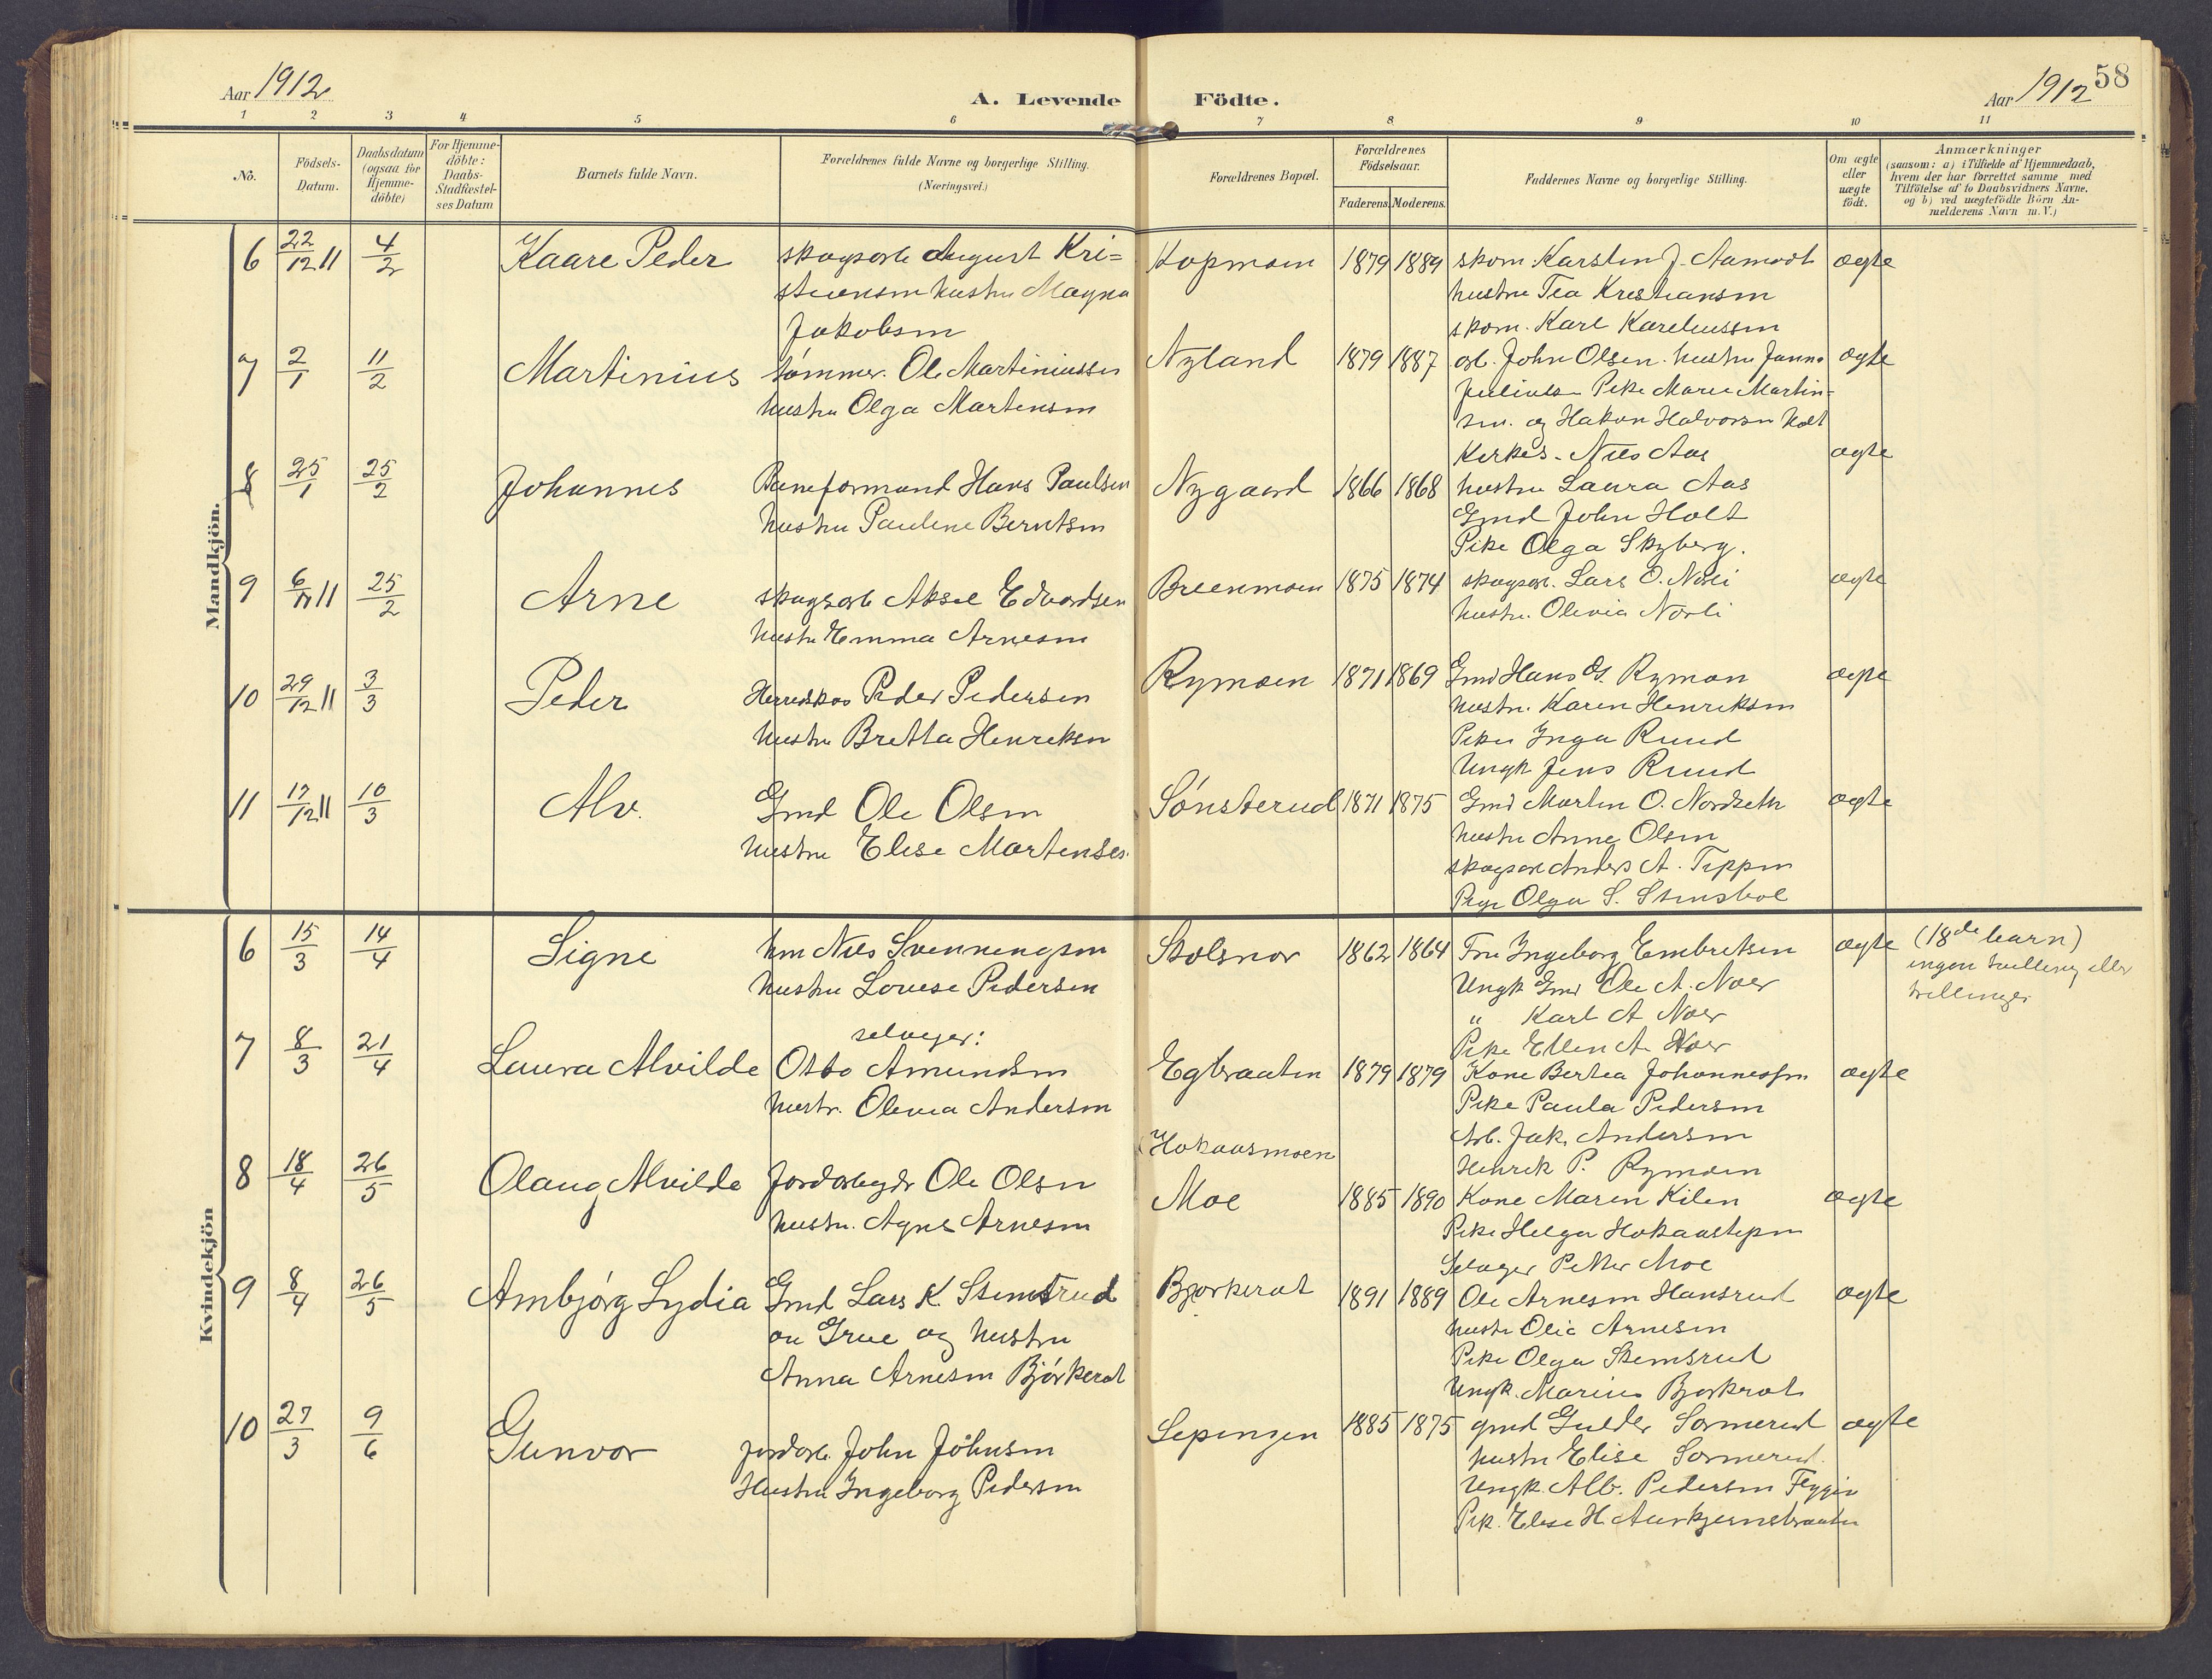 Aar 1912
A. Levende Födte.
Aar 1912
58
1 2 3 4 5 6 7 8 9 10 11
No.
Födsels-
Datum.
Daabsdatum
(ogsaa for
Hjemme-
döbte)
For Hjemme-
döbte:
Daabs-
Stadfæstel-
ses Datum
Barnets fulde Navn.
Forældrenes fulde Navne og borgerlige Stilling.
(Næringsvei.)
Forældrenes Bopæl.
Forældrenes
Födselsaar.
Faderens. Moderens.
Faddernes Navne og borgerlige Stilling.
Om ægte
eller
uægte
födt.
Anmærkninger
(saasom: a) i Tilfælde af Hjemmedaab,
hvem der har forrettet samme med
Tilföielse af to Daabsvidners Navne,
og b) ved uægtefödte Börn An-
melderens Navn m.V.)
Mandkjön.
6 22/12 11 4/2 Kaare Peder
skogsarb August Kri=
stiansen hustru Magna
Jakobsen
Kopmoen 1879 1889
skom Karsten J. Aamodt
hustru Tea Kristiansen
skom. Karl Karelussen
ægte
7 2/1 11/2 Martinius
tømmer. Ole Martiniussen
hustru Olga Martensen
Nyland 1879 1887
arb. John Olsen hustru Janna
Pike Marie Martin=
sen. og Hakon Halvorsen Holt
ægte
8 25/1 25/2 Johannes
Baneformand Hans Paulsen
hustru Pauline Berntsen
Nygaard 1866 1868
Kirkes. Nils Aas
hustru Laura Aas
Gmd John Holt
Pike Olga Skyberg.
ægte
9 6/11 11 25/2 Arne
skogsarb Aksel Edvardsen
hustr Emma Arnesen
Breenmoen 1875 1874
skogsar. Lars O. Norli
hustru. Olivia Norli
ægte
10 29/12 11 3/3 Peder
Herredskas Peder Pedersen
hustru Bretta Henriksen
Rymoen 1871 1869
Gmd Hans Rymoen
hustr. Karen Henriksen
Pike Inga Ruud
Ungk Jens Ruud
ægte
11 17/12 11 10/3 Alv.
Gmd Ole Olsen
hustru Elise Martensen
Sønsterud 1871 1875
Gmd Martin O. Nordseth
hustru Anne Olsen
skogsarb Anders A. Teppen
Olga S. Stensbøl
ægte
Kvindekjön
6 15/3 14/4 Signe
hm Nils Svenningsen
hustru Lovise Pedersen
Stolsnor 1862 1864
Fru Ingeborg Embretsen
Ungk Gmd Ole A. Noer
" Karl A Noer
Pike Ellen A. Noer
ægte
(18de barn)
ingen tvilling eller
trillinger
7 8/3 21/4 Laura Alvilde
selveger:
Otto Amundsen
hustr. Olivia Andersen
Egbraaten 1879 1879
Kone Bertea Johannessen
Pike Paula Pedersen
Arb. Jak. Andersen
Henrik P. Rymoen
ægte
8 18/4 26/5 Olaug Alvilde
Jordarbeyder Ole Olsen
hustru. Agnes Arnesen
Hokaasmoen
Moe 1885 1890
Kone Maren Kilen
Pike Helga Hokaastepen
Selveger Petter Moe
ægte
9 8/4 26/5 Arnbjørg Lydia
Gmd Lars K. Stemsrud
av Grue og hustru
Anna Arnesen Bjørkerot
Bjørkerot 1891 1889
Ole Arnesen Hansrud
hustr Olie Arnesen
Pike Olga Stemsrud
Ungk. Marius Bjørkrot
ægte
10 27/3 9/6 Gunvor
jordarb. John Johnsen
Hustru Ingeborg Pedersen
Sepengen 1885 1875
gmd Gulder Sormerud
hustru Elise Sormerud
Ungk. Alb. Pedersen Flygin
Pik. Elise H.
ægte